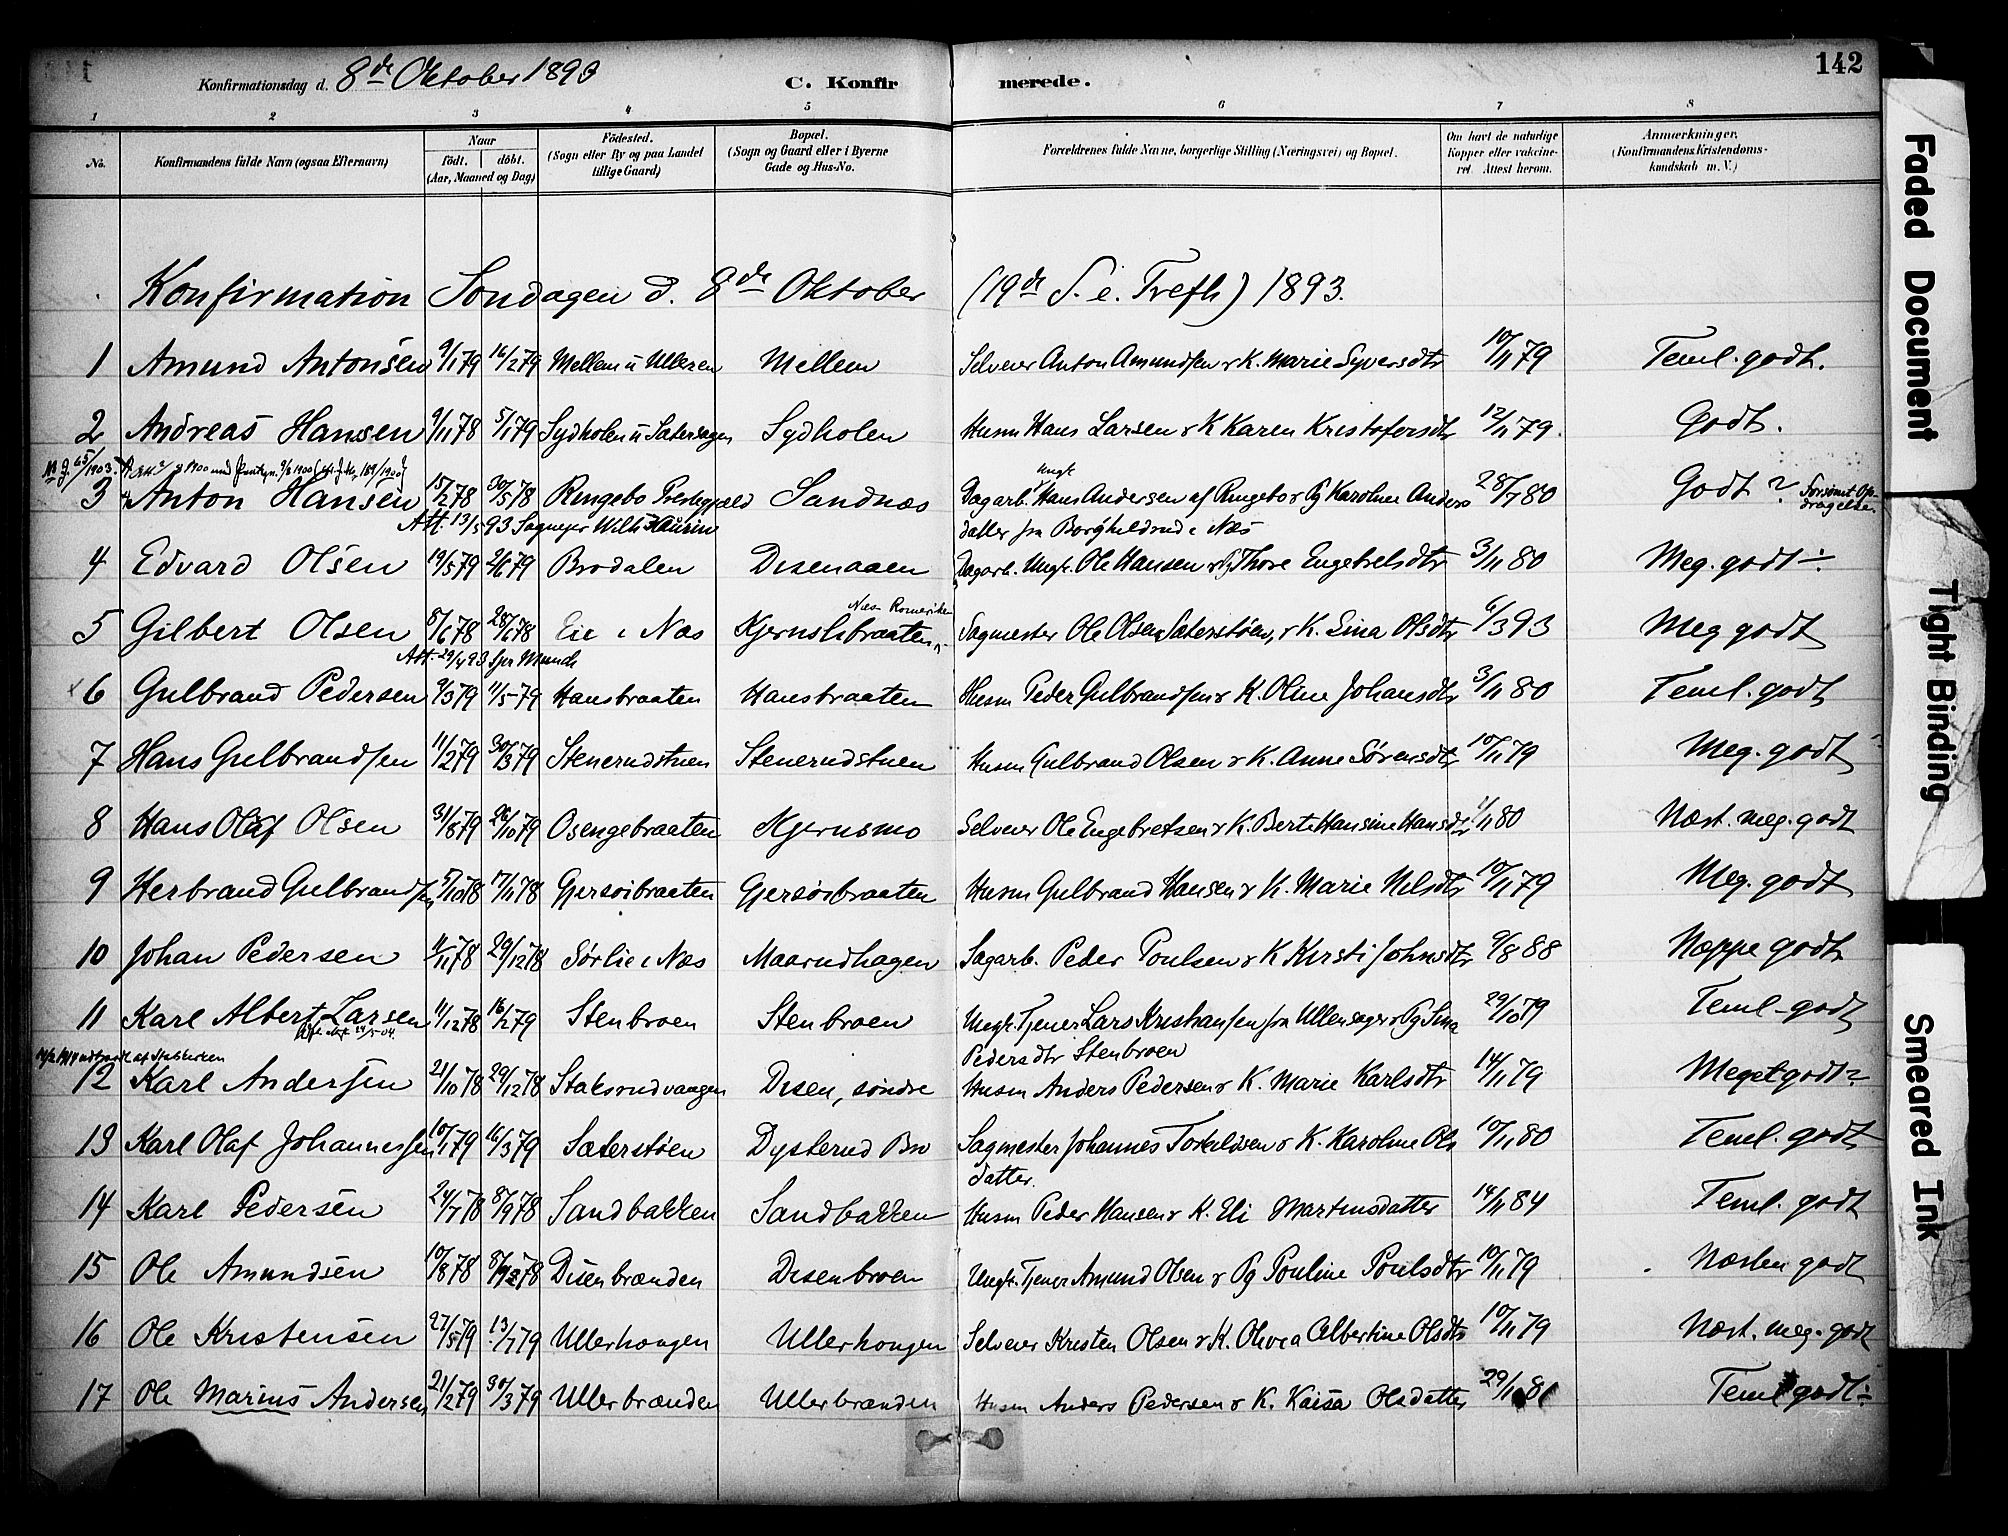 Konfirmationsdag d. 8de Oktober 1893 C. Konfirmerede. 142
1 2 3 4 5 6 7 8
No. Konfirmandens fulde Navn (ogsaa Efternavn) Naar født. døbt. (Aar, Maaned og Dag) Födested. (Sogn eller By og paa Landet tillige Gaard) Bopæl. (Sogn og Gaard eller i Byerne Gade og Hus-No. Forældrenes fulde Navne, borgerlige Stilling (Næringsvei) og Bopæl. Om havt de naturlige Kopper eller vakcineret. Attest herom. Anmærkninger. (Konfirmandens Kristendomskundskab m. V.)
Konfirmation Søndagen d. 8de Oktober (19de S. e. Trefh) 1893.
1 Amund Antonsen 9/1 79 16/2 79 Mellem u Ulleren Mellem Selveier Anton Amundsen & K. Marie Syversdtr 10/11 79 Teml. godt.
2 Andreas Hansen 9/11 78 5/1 79 Sydholen u Sætersagen Sydholen Husm Hans Larsen & K Karen Kristofersdtr 12/11 79. Godt.
3 Anton Hansen 15/2 78 30/5 78 Ringebo Prestegjæld Sandnæs Dagarb. Ungk. Hans Andersen af Ringebo & Pg Karoline Anders 28/7 80 Godt ? Forsømt Opdragelse
Att. 13/5 93 Sogneper Wilh. Laurin datter fra Borghildrud i Næs
4 Edvard Olsen 19/5 79 2/6 79 Brodalen Disenaaen Dagarb. Ungk. Ole Hansen & Pg Thore Engebretsdtr 3/11 80 Meg. godt ÷.
5 Gilbert Olsen 8/6 78 28/6 78 Eie i Næs Kjernsbraaten Næs Romerike Sagmester Ole Olsen Sæterstøen, & K. Lina Olsdtr 6/3 93 Meg godt
Att. 29/4 93 Spr Munch
6 Gulbrand Pedersen 9/3 79 11/5 79 Hansbraaten Hansbraaten Husm Peder Gulbrandsen & K. Oline Johansdtr 3/11 80 Teml. godt
7 Hans Gulbrandsen 11/2 79 30/3 79 Stenerudstuen Stenerudstuen Husm Gulbrand Olsen & K. Anne Sørensdtr 10/11 79 Meg. godt
8 Hans Olaf Olsen 31/8 79 26/10 79 Osengebraaten Kjernsmo Selveier Ole Engebretsen & K. Berte Hansine Hansdtr 1/11 80 Næst. meg. godt
9 Herbrand Gulbrandsen 5/10 78 17/11 78 Gjersøibraaten Gjersøibraaten Husm Gulbrand Hansen & K. Marie Nilsdtr 10/11 79 Meg. godt
10 Johan Pedersen 11/11 78 29/12 78 Sørlie i Næs Maarudhagen Sagarb. Peder Poulsen & K Kirsti Johnsdtr 9/8 88 Neppe godt
11 Karl Albert Larsen 11/12 78 16/2 79 Stenbroen Stenbroen Ungk. Tjener Lars Kristiansen fra Ullensager & Pg Lina 29/10 79 Teml. godt
Pedersdtr Stenbroen
12 Karl Andersen 21/10 78 29/12 78 Staksrudvangen Disen, søndre Husm Anders Pedersen & K. Marie Karlsdtr 14/11 79 Meget godt ?
13 Karl Olaf Johannessen 10/1 79 16/3 79 Sæterstøen Dysterud Bro Sagmester Johannes Torkildsen & K. Karoline Ols 10/11 80 Teml. godt
datter.
14 Karl Pedersen 24/7 78 8/9 78 Sandbakken Sandbakken Husm Peder Hansen & K. Eli Martinsdatter 14/11 84 Teml. godt
15 Ole Amundsen 10/8 78 8/12 78 Disenbrænden Disenbroen Ungk. Tjener Amund Olsen & Pg Pouline Poulsdtr 10/11 79 Næsten godt
16 Ole Kristensen 27/5 79 13/7 79 Ullerhougen Ullerhougen Selveier Kristen Olsen & K. Olivia Albertine Olsdtr 10/11 79 Næst. meg. godt
17 Ole Marius Andersen 21/2 79 30/3 79 Ullerbrænden Ullerbrænden Husm Anders Pedersen & K. Kaisa Olsdatter Teml godt ÷
Faded Document
Tight Binding
Smeared Ink